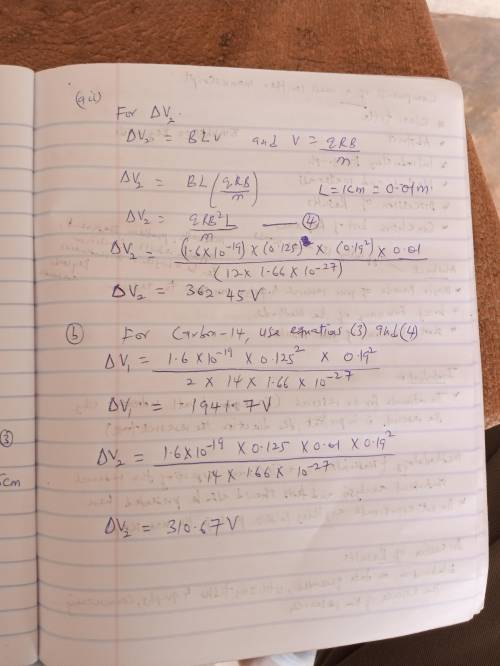 (aii)
For ΔV₂.
ΔV₂ = BLV and V = qRB/m
ΔV₂ = BL(qRB/m) L = 1cm = 0.01m
ΔV₂ = qRB²L/m —— ④
ΔV₂ = (1.6×10⁻¹⁹) × (0.125) × (0.19²) × 0.01 / (12 × 1.66 × 10⁻²⁷)
ΔV₂ = 362.45 V
(b) For Carbon-14, use equations (3) and (4)
ΔV₁ = 1.6 × 10⁻¹⁹ × 0.125² × 0.19² / 2 × 14 × 1.66 × 10⁻²⁷
ΔV₁ = 1941.7V
③
ΔV₂ = 1.6×10⁻¹⁹ × 0.125 × 0.01 × 0.19² / 14 × 1.66 × 10⁻²⁷
cm
ΔV₂ = 310.67 V